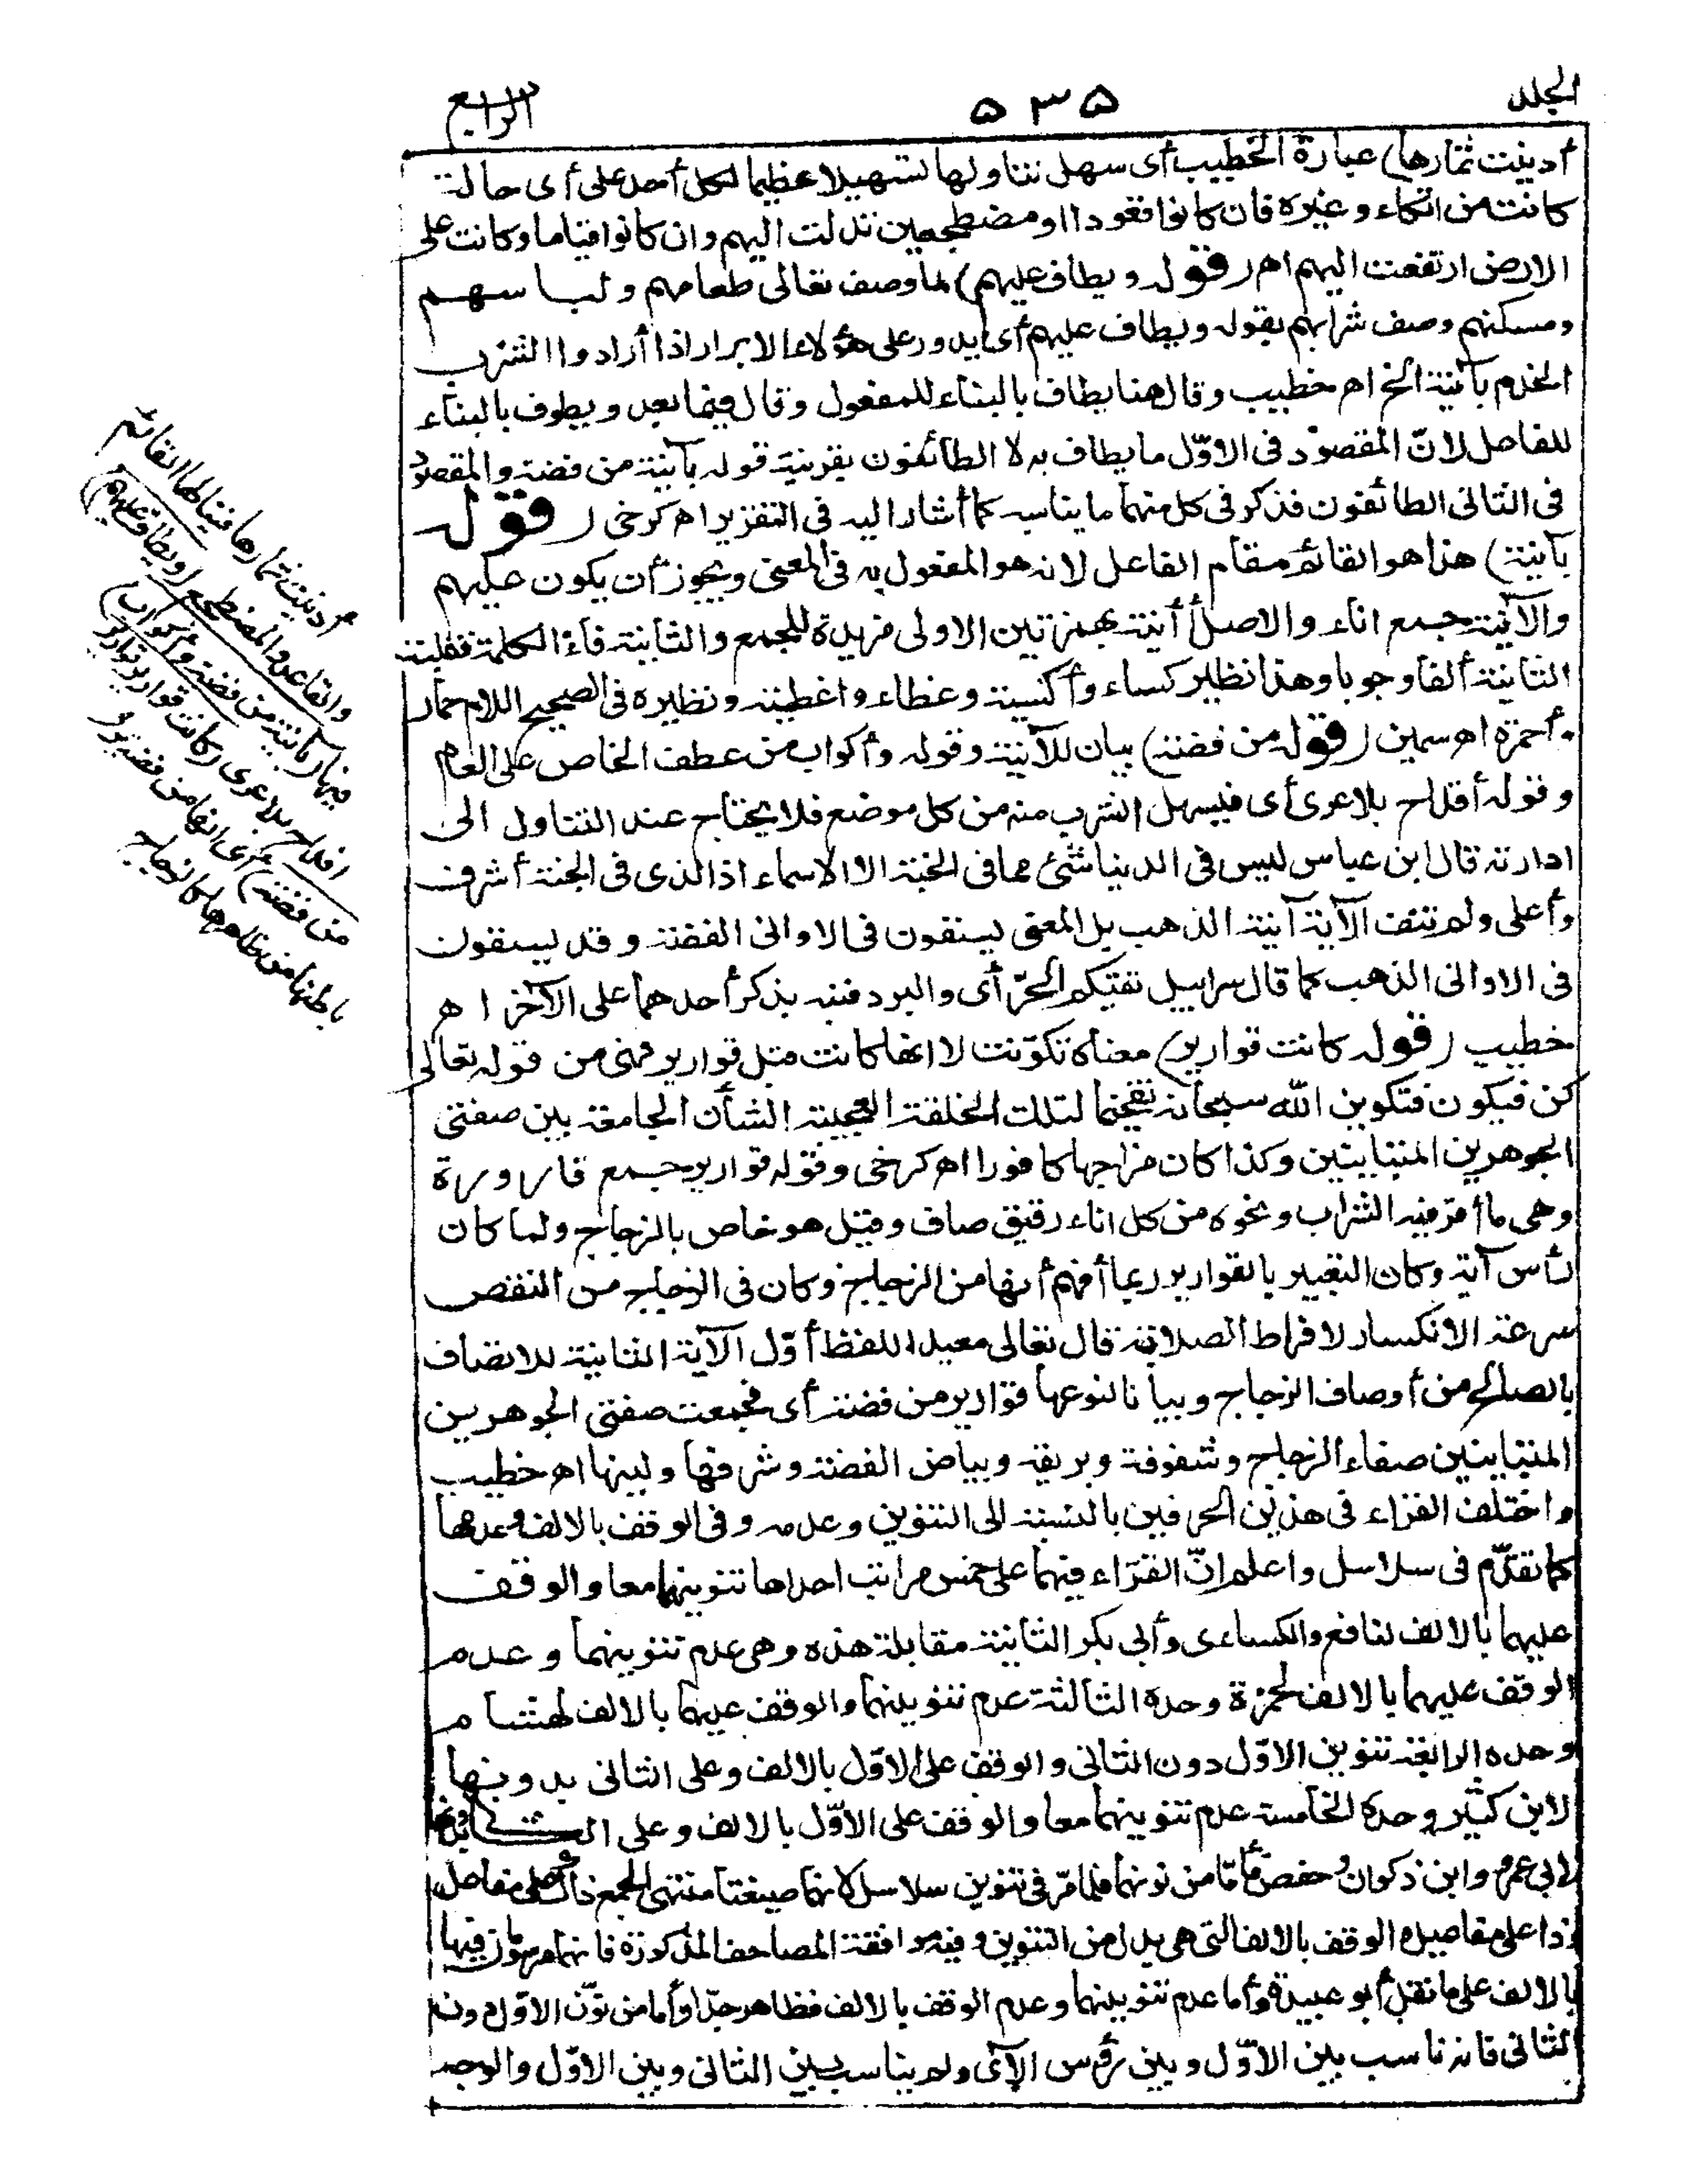 الجلد
٥٣٥
الرابع
أدنيت ثمارها) عبارة الخطيب أى سهل تناولها تسهيلا عظيما لكل أحد على أى حالة
كانت من اتكاء وغيره فان كانوا قعودا او مضطجعين تدلت اليهم وان كانوا قياما وكانت على
الارض ارتفعت اليهم اه (قوله ويطاف عليهم) لما وصف تعالى طعامهم ولباسهم
ومسكنهم وصف شرابهم بقوله ويطاف عليهم أى يدور على هؤلاء الابرار اذا أرادوا الشرب
الخدم بآنية الخ اه خطيب وقال هنا يطاف بالبناء للمفعول وقال فيما بعد ويطوف بالبناء
للفاعل لانّ المقصود فى الاوّل ما يطاف به لا الطائفون بقرينة قوله بآنية من فضة والمقصود
فى الثانى الطائفون فذكر فى كل منهما ما يناسبه كما أشار اليه فى التقرير اه كرخى (قوله
بآنية) هذا هو القائم مقام الفاعل لانه هو المفعول به فى المعنى ويجوز أن يكون عليهم
والآنية جمع اناء والاصل أأنية بهمزتين الاولى مزيدة للجمع والثانية فاء الكلمة فقلبت
الثانية ألفا وجوبا وهذا نظير كساء وأكسية وغطاء واغطية ونظيره فى الصحيح اللام حمار
وأحمرة اه سمين (قوله من فضة) بيان للآنية وقوله وأكواب من عطف الخاص على العام
وقوله أقداح بلا عرى أى فيسهل الشرب منه من كل موضع فلا يحتاج عند التناول الى
ادارته قال ابن عباس ليس فى الدنيا شئ مما فى الجنة الا الاسماء اذ الذى فى الجنة أشرف
وأعلى ولم تنف الآية آنية الذهب بل المعنى يسقون فى الاوانى الفضة وقد يسقون
فى الاوانى الذهب كما قال سرابيل تقيكم الحرّ أى والبرد فنبه بذكر أحدهما على الآخر اه
خطيب (قوله كانت قوارير) معناه تكوّنت لا انها كانت مثل قوارير فهى من قوله تعالى
كن فيكون فتكوين الله سبحانه تفخيما لتلك الخلقة العجيبة الشأن الجامعة بين صفتى
الجوهرين المتباينين وكذا كان مزاجها كافورا اه كرخى وقوله قوارير جمع قارورة
وهى ما أقرّ فيه الشراب ونحوه من كل اناء رقيق صاف وقيل هو خاص بالزجاج ولما كان
رأس آية وكان التعبير بالقوارير ربما أفهم أنها من الزجاج وكان فى الزجاج من النقص
سرعة الانكسار لافراط الصلابة قال تعالى معيدا للفظ أوّل الآية الثانية للاتصاف
بالصالح من أوصاف الزجاج وبيانا لنوعها قوارير من فضة أى فجمعت صفتى الجوهرين
المتباينين صفاء الزجاج وشفوفة وبريقه وبياض الفضة وشرفها ولينها اه خطيب
واختلف القراء فى هذين الحرفين بالنسبة الى التنوين وعدمه وفى الوقف بالالف وعدمها
كما تقدّم فى سلاسل واعلم انّ القرّاء فيهما على خمس مراتب احداها تنوينهما معا والوقف
عليهما بالالف لنافع والكساءى وأبى بكر الثانية مقابلة هذه وهى عدم تنوينهما وعدم
الوقف عليهما بالالف لحمزة وحده الثالثة عدم تنوينهما والوقف عليهما بالالف لهشام
وحده الرابعة تنوين الاوّل دون الثانى والوقف على الاوّل بالالف وعلى الثانى بدونها
لابن كثير وحده الخامسة عدم تنوينهما معا والوقف على الاوّل بالالف وعلى الثانى بدونها
لابى عمرو وابن ذكوان وحفص فأمّا من نونهما فلما مرّ فى تنوين سلاسل لانهما صيغتا منتهى الجمع ذاك على مفاعل
وذا على مفاعيل والوقف بالالف التى هى بدل من التنوين وفيه موافقة المصاحف المذكورة فانهما مرسومان فيها
بالالف على ما نقل أبو عبيدة وأما عدم تنوينهما وعدم الوقف بالالف فظاهر جدّا وأما من نوّن الاوّل دون
الثانى فانه ناسب بين الاوّل وبين رؤس الآى ولم يناسب بين الثانى وبين الاوّل والوجه
أدنيت ثمارها فينالها القائم
والقاعد والمضطجع (ويطاف عليهم)
فيها (بآنية من فضة وأكواب)
اقداح بلا عرى (كانت قوارير قوارير
من فضة) أى انها من فضة يرى
باطنها من ظاهرها كالزجاج